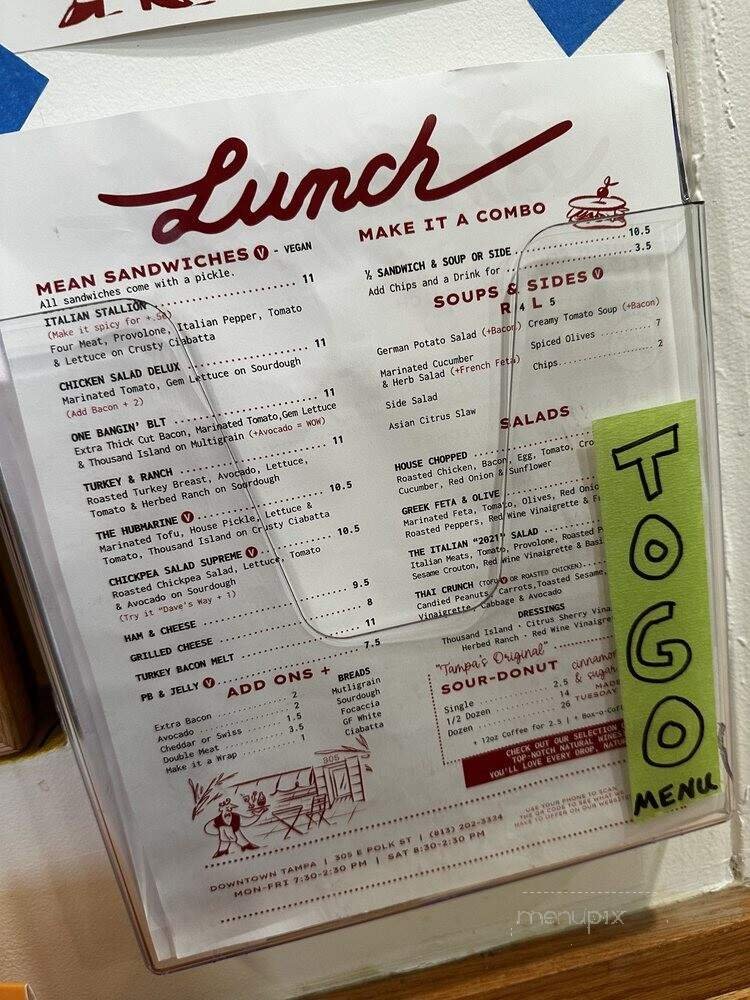 Lunch
MEAN SANDWICHES V - VEGAN
All sandwiches come with a pickle.
ITALIAN STALLION 11
(Make it spicy for +.50)
Four Meat, Provolone, Italian Pepper, Tomato
& Lettuce on Crusty Ciabatta
CHICKEN SALAD DELUX 11
Marinated Tomato, Gem Lettuce on Sourdough
(Add Bacon + 2)
ONE BANGIN' BLT 11
Extra Thick Cut Bacon, Marinated Tomato,Gem Lettuce
& Thousand Island on Multigrain (+Avocado = WOW)
TURKEY & RANCH 11
Roasted Turkey Breast, Avocado, Lettuce,
Tomato & Herbed Ranch on Sourdough
THE HUBMARINE V 10.5
Marinated Tofu, House Pickle, Lettuce &
Tomato, Thousand Island on Crusty Ciabatta
CHICKPEA SALAD SUPREME V 10.5
Roasted Chickpea Salad, Lettuce, Tomato
& Avocado on Sourdough
(Try it "Dave's Way + 1)
HAM & CHEESE 9.5
GRILLED CHEESE 8
TURKEY BACON MELT 11
PB & JELLY V 7.5
ADD ONS +
Extra Bacon 2
Avocado 2
Cheddar or Swiss 1.5
Double Meat 3.5
Make it a Wrap 1
BREADS
Mutligrain
Sourdough
Focaccia
GF White
Ciabatta
805
MAKE IT A COMBO
½ SANDWICH & SOUP OR SIDE 10.5
Add Chips and a Drink for 3.5
SOUPS & SIDES V
R 4 L 5
German Potato Salad (+Bacon)
Marinated Cucumber
& Herb Salad (+French Feta)
Side Salad
Asian Citrus Slaw
Creamy Tomato Soup (+Bacon)
Spiced Olives 7
Chips 2
SALADS
HOUSE CHOPPED
Roasted Chicken, Bacon, Egg, Tomato,
Cucumber, Red Onion & Sunflower
GREEK FETA & OLIVE
Marinated Feta, Tomato, Olives, Red
Roasted Peppers, Red Wine Vinaigrette &
THE ITALIAN "2021" SALAD
Italian Meats, Tomato, Provolone, Roasted
Sesame Crouton, Red Wine Vinaigrette &
THAI CRUNCH (TOFU V OR ROASTED CHICKEN)
Candied Peanuts, Carrots,Toasted Sesame,
Vinaigrette, Cabbage & Avocado
DRESSINGS
Thousand Island · Citrus Sherry
Herbed Ranch · Red Wine
"Tampa's Original"
SOUR-DONUT
& sugar
Single 2.5
1/2 Dozen 14
Dozen 26
TUESDAY
+ 12oz Coffee for 2.5 |
CHECK OUT OUR SELECTION
TOP-NOTCH NATURAL WINES
YOU'LL LOVE EVERY DROP,
USE YOUR PHONE TO SCAN
THE QR CODE TO SEE WHAT
HAVE TO OFFER ON OUR
DOWNTOWN TAMPA | 305 E POLK ST | (813) 202-3334
MON-FRI 7:30-2:30 PM | SAT 8:30-2:30 PM
TOGO
MENU
menupix